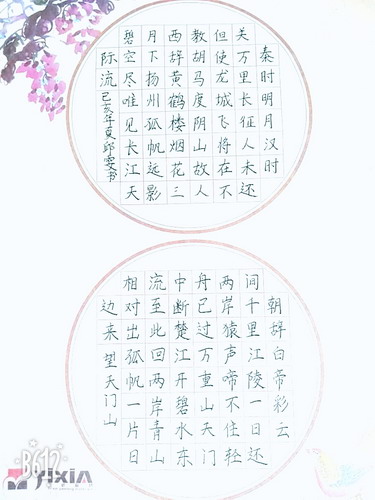 秦时明月汉时
关万里长征人未还
但使龙城飞将在不
教胡马度阴山故人
西辞黄鹤楼烟花三
月下扬州孤帆远影
碧空尽唯见长江天
际流 己亥年夏邱雯书
朝辞白帝彩云
间千里江陵一日还
两岸猿声啼不住轻
舟已过万重山天门
中断楚江开碧水东
流至此回两岸青山
相对出孤帆一片日
边来 望天门山
B612